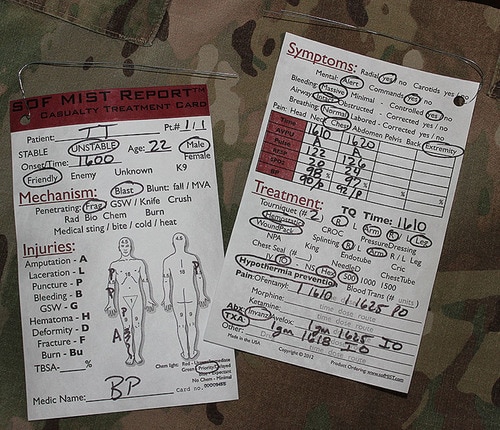 SOF MIST REPORT™
CASUALTY TREATMENT CARD
Patient: JJ Pt.# 1 / 1
STABLE UNSTABLE Age: 22 Male
Onset/Time: 1600 Female
Friendly Enemy Unknown K9
Mechanism: Blast Blunt: fall / MVA
Penetrating: Frag GSW / Knife Crush
Rad Bio Chem Burn
Medical sting / bite / cold / heat
Injuries:
Amputation - A
Laceration - L
Puncture - P
Bleeding - B
GSW - G
Hematoma - H
Deformity - D
Fracture - F
Burn - Bu
TBSA-____%
Medic Name: BP
Symptoms: Radial yes no Carotids yes no
Mental: Alert Commands yes no
Bleeding: Massive Minimal - Controlled yes no
Airway: Intact Obstructed - Corrected yes no
Breathing: Normal Labored - Corrected yes no
Pain: Head Neck Chest Abdomen Pelvis Back Extremity
Time 1610 1620
AVPU A A
Pulse 122 126
Resp 20 24
SPO2 98% 97%
BP 90/P 92/P
Treatment:
Tourniquet (# 2) TQ Time: 1610
Hemostatic R L Arm R L Leg
WoundPack CROC PressureDressing
NPA Splinting R L Arm R / L Leg
King Endotube Cric
Chest Seal (# ) NeedleD ChestTube
IV IO NS Hex 500 1000 1500
Hypothermia prevention Blood Trans (# units)
Pain: OFentanyl: 1 1610 1 1625 PO
Morphine: time dose route
Ketamine: time dose route
Abx: Invanz Avelox: 1gm 1625 IO
TXA 1gm 1618 IO
Other:
Made in the USA Copyright © 2012 Product Ordering: www.sofMIST.com